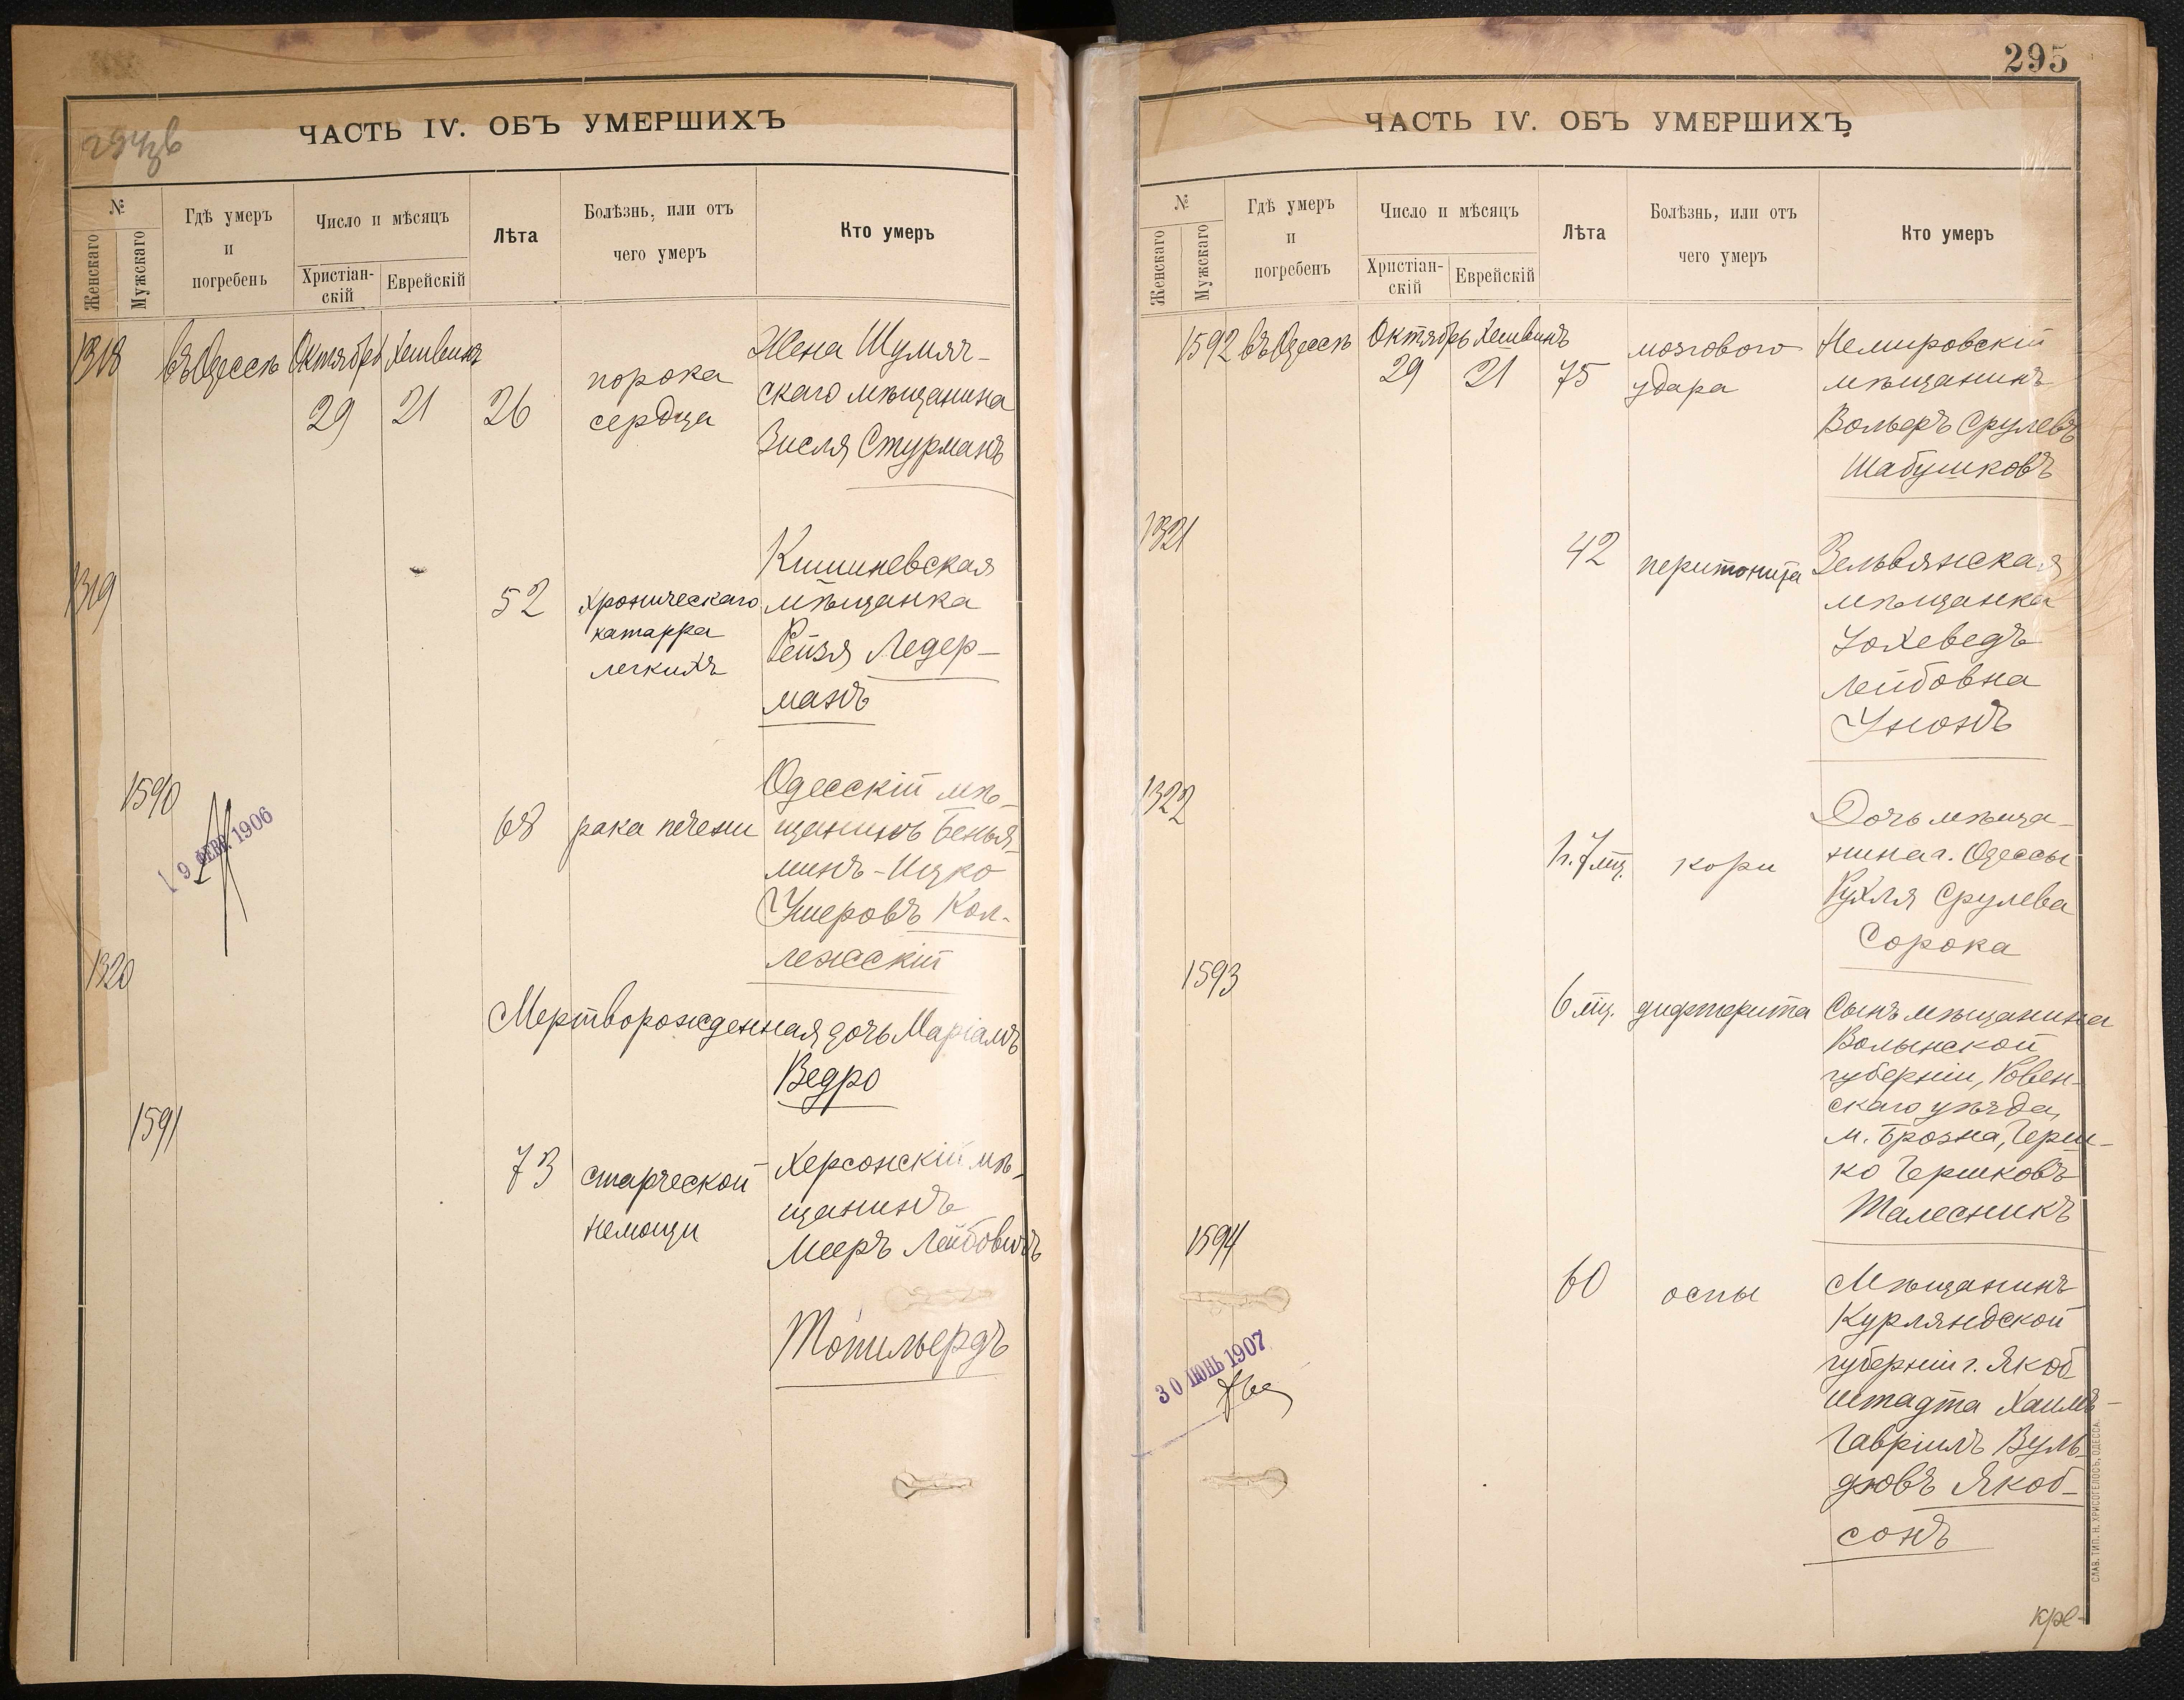 ЧАСТЬ IV. ОБЪ УМЕРШИХЪ
№
Женскаго
Мужскаго
Гдѣ умеръ
и
погребенъ
Число и мѣсяцъ
Христіан-
скій
Еврейскій
Лѣта
Болѣзнь, или отъ
чего умеръ
Кто умеръ
1318 въ Одессѣ Октябрь Хешвинъ
29 21 26
порока
сердца
Жена Шумяч-
скаго мѣщанина
Зисля Стурманъ
1319
52
хроническаго
катарра
легкихъ
Кишиневская
мѣщанка
Рейзя Ледер-
манъ
1590
19 ФЕВ. 1906
68 рака печени
Одесскій мѣ-
щанинъ Бенья-
минъ-Ицко
Ушеровъ Кол-
лежскій
1320
Мертворожденная дочь Маріамъ
Ведро
1591
73
старческой
немощи
Херсонскій мѣ-
щанинъ
Мееръ Лейбовичъ
295
ЧАСТЬ IV. ОБЪ УМЕРШИХЪ
№
Женскаго
Мужскаго
Гдѣ умеръ
и
погребенъ
Число и мѣсяцъ
Христіан-
скій
Еврейскій
Лѣта
Болѣзнь, или отъ
чего умеръ
Кто умеръ
1592 въ Одессѣ Октябрь Хешвинъ
29 21 75
мозгового
удара
Немировскій
мѣщанинъ
Вольфъ Срулевъ
Шабушковъ
1321
42 перитонита
Зельвянская
мѣщанка
Іохеведъ
Лейбовна
1322
1 г. 7 мц. кори
Дочь мѣща-
нина г. Одессы
Рухля Срулева
Сорока
1593
6 мц. дифтерита
Сынъ мѣщанина
Волынской
губерніи, Ровен-
скаго уѣзда,
м. Брозна, Герш-
ко Гершковъ
Талесникъ
1594
60 оспы
Мѣщанинъ
Курляндской
губерніи г. Якоб
штадта Хаимъ-
Гавріилъ Вуль-
фовъ Якоб-
сонъ
30 ІЮНЬ 1907
СЛАВ. ТИП. Н. ХРИСОГЕЛОСЪ, ОДЕССА.